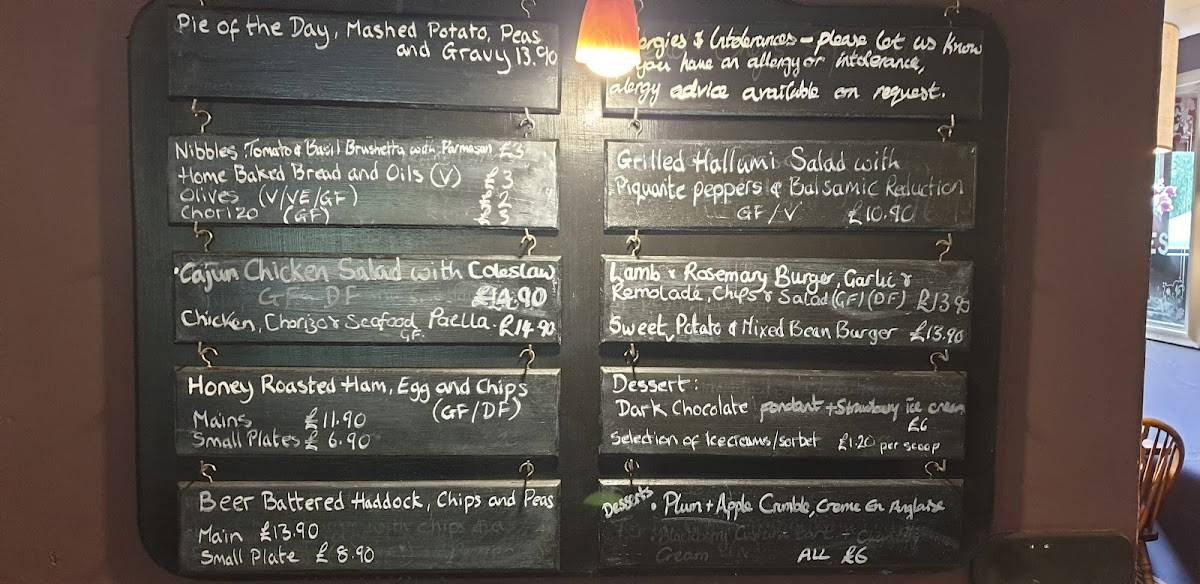 Pie of the Day, Mashed Potato, Peas
and Gravy 13.90
Nibbles: Tomato & Basil Brushetta with Parmesan £3
Home Baked Bread and Oils (V) 3
Olives (V/VE/GF) 2
Chorizo (GF) 3
Cajun Chicken Salad with Coleslaw
GF DF £14.90
Chicken, Chorizo & Seafood Paella. £14.90
GF.
Honey Roasted Ham, Egg and Chips
(GF/DF)
Mains £11.90
Small Plates £6.90
Beer Battered Haddock, Chips and Peas
Main £13.90
Small Plate £8.90
& Intolerances - please let us know
you have an allergy or intolerance,
alergy advice available on request.
Grilled Hallumi Salad with
Piquante peppers & Balsamic Reduction
GF/V £10.90
Lamb & Rosemary Burger, Garlic &
Remolade, Chips & Salad (GF) (DF) £13.90
Sweet Potato & Mixed Bean Burger £13.90
Dessert:
Dark Chocolate fondant + Strawberry ice cream
£6
Selection of Icecreams/sorbet £1.20 per scoop
Desserts • Plum + Apple Crumble, Creme En Anglaise
Cream ALL £6